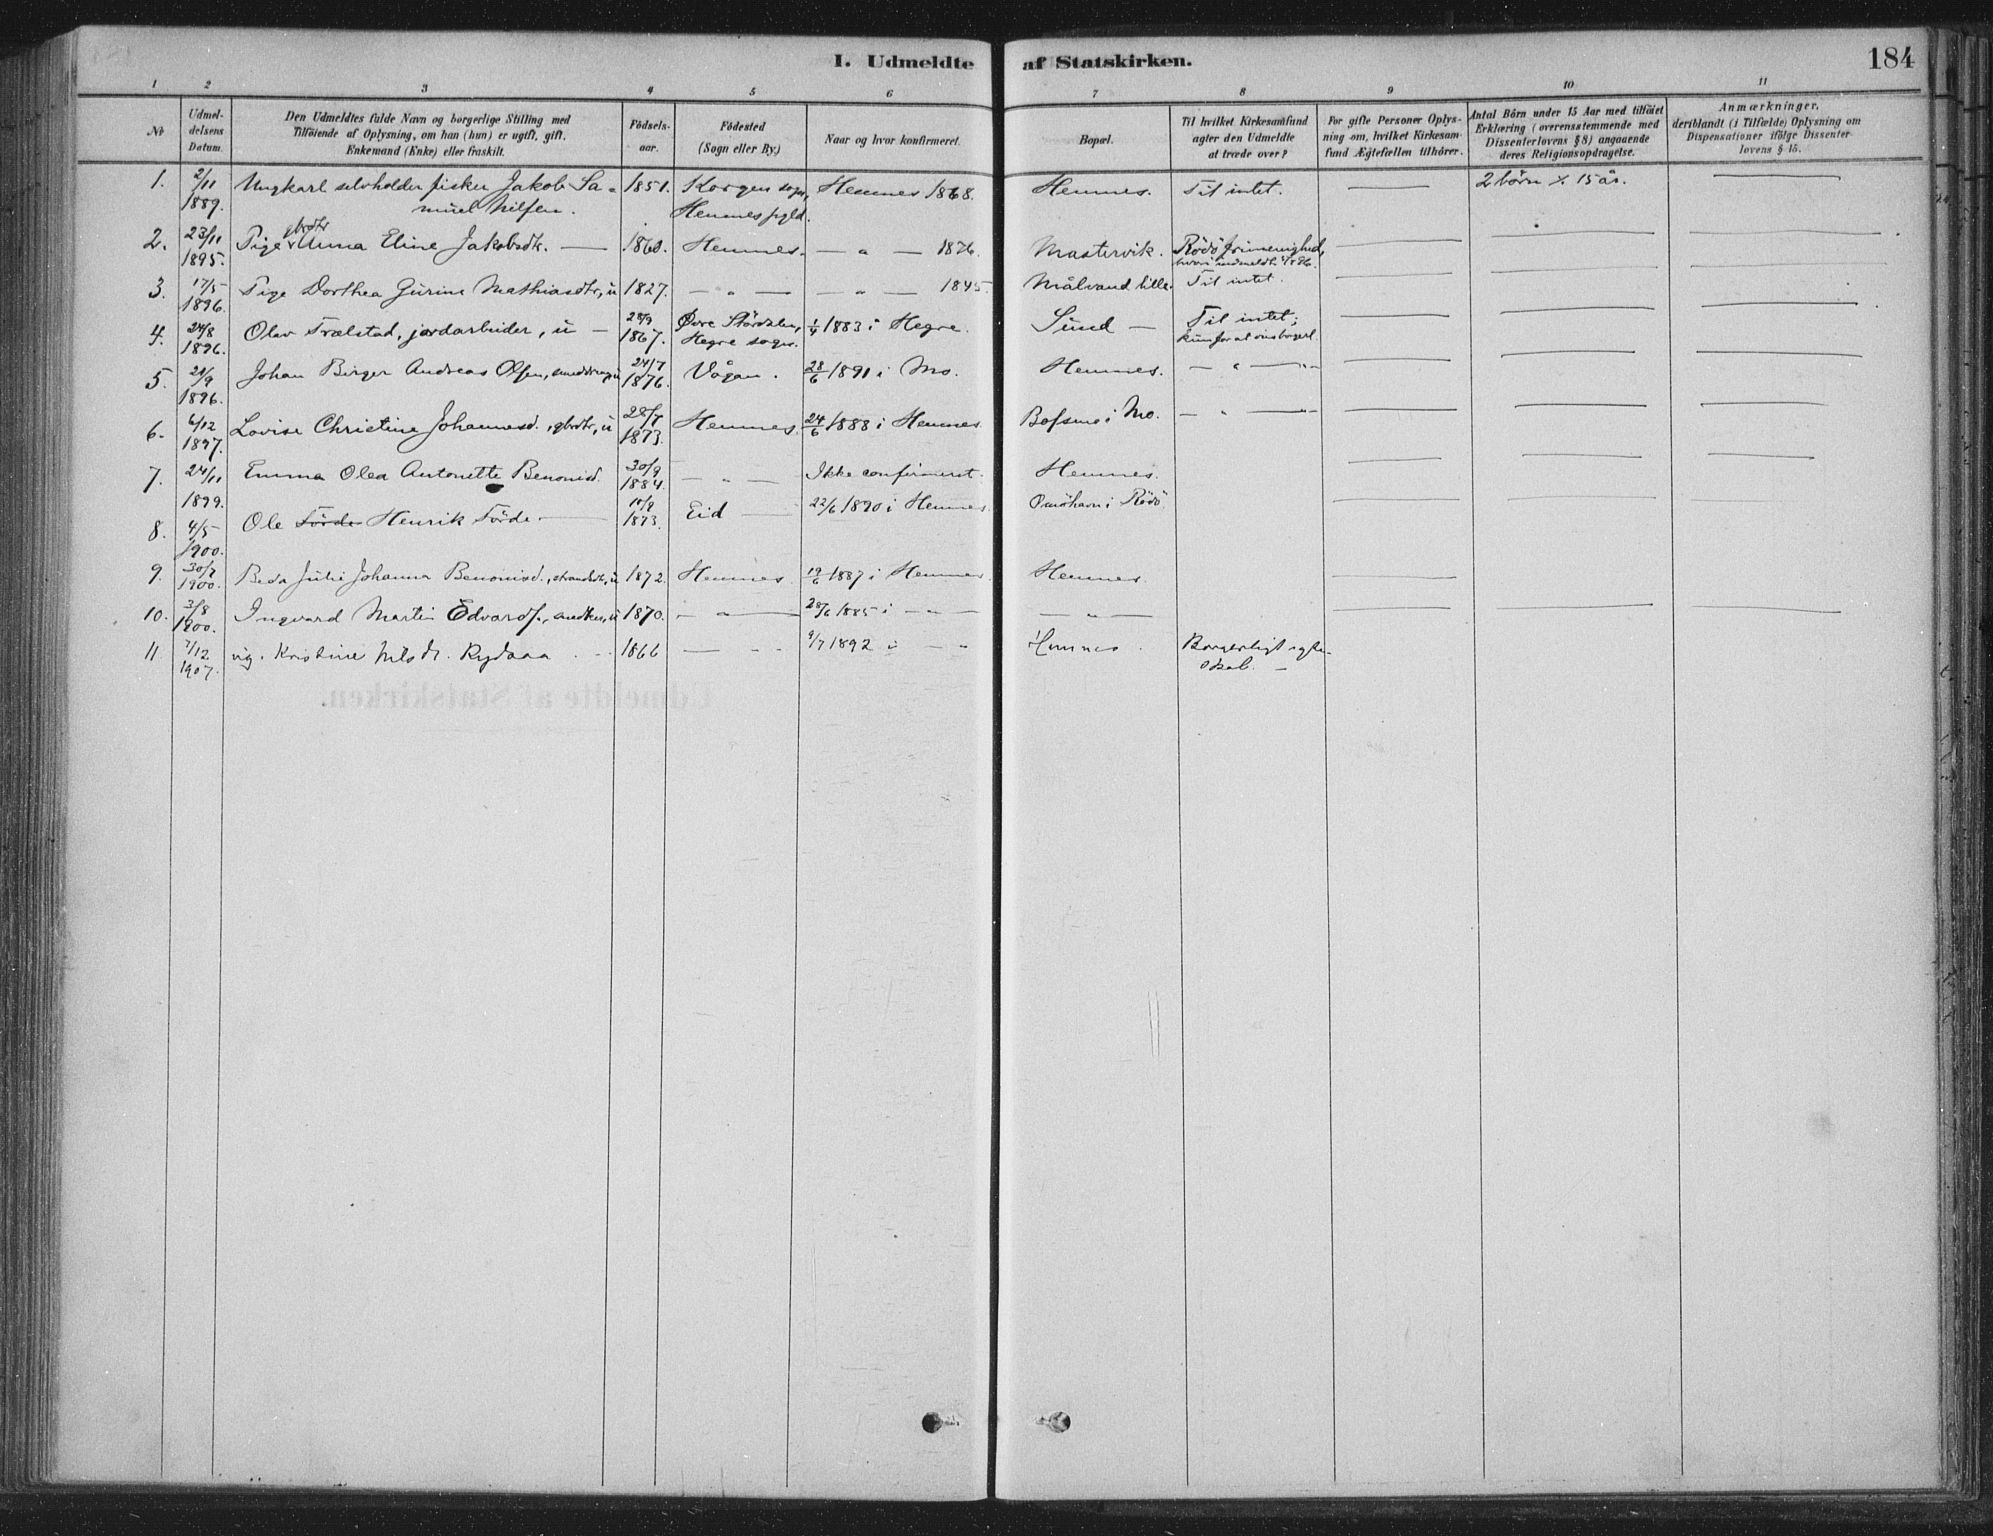 I. Udmeldte af Statskirken.
184
1 2 3 4 5 6 7 8 9 10 11
No
Udmeldelsens Datum.
Den Udmeldtes fulde Navn og borgerlige Stilling med
Tilföiende af Oplysning, om han (hun) er ugift, gift,
Enkemand (Enke) eller fraskilt.
Födselsaar.
Födested
(Sogn eller By.)
Naar og hvor konfirmeret.
Bopæl.
Til hvilket Kirkesamfund
agter den Udmeldte
at træde over?
For gifte Personer Oplys-
ning om, hvilket Kirkesam-
fund Ægtefællen tilhörer.
Antal Börn under 15 Aar med tilföiet
Erklæring (overensstemmende med
Dissenterlovens § 8) angaaende
deres Religionsopdragelse.
Anmærkninger,
deriblandt (i Tilfælde) Oplysning om
Dispensationer ifölge Dissenter-
lovens § 15.
1. 2/11 1889. Ungkarl selvholder fisker Jakob Sa- 1851. Korgen sogn, Hemnes 1868. Hemnes. Til intet. — 2 börn 15 år. —
muel Nilsen. Hemnes
2. 23/11 1895. Pige gbrdtr Anna Eline Jakobsdtr. — 1860. Hemnes. — " — 1876. Mastervik. Rödö frimenighed,
3. 17/5 1896. Pige Dorthea Gurine Mathiasdtr, u 1827. — " — — " — 1845. Målvand lille. Til intet.
4. 24/8 1896. Olav Trælstad, jordarbeider, u — 28/9 1867. Øvre Stördalen, Hegre sogn. 1/4 1883 i Hegre. Sund — Til intet;
5. 21/9 1896. Johan Birger Andreas Olsen, 24/7 1876. Vågan. 28/6 1891 i Mo. Hemnes. — " —
6. 6/12 1897. Lovise Christine Johannesd., gbrdtr, u 28/7 1873. Hemnes. 24/6 1888 i Hemnes i Mo. — " —
7. 24/11 1899. Emma Olea Antonette Benonisd. 30/9 1884. — " — Ikke confirmeret. Hemnes.
8. 4/5 1900. Ole Förde Henrik Förde. 1873. Eid — 22/6 1890 i Hemnes i Rödö.
9. 30/7 1900. Beda Julie Johanna Benonisd., u 1872. Hemnes. 19/6 1887 i Hemnes. Hemnes.
10. 3/8 1900. Ingvard Martin Edvards., u 1870. — " — 28/6 1885 i — " — — " —
11 7/12 1907. ug. Kristine Nilsdt. Rydaaa 1866 — " — 9/7 1892 i — " Hemnes. Borgerligt egte-
skab. —